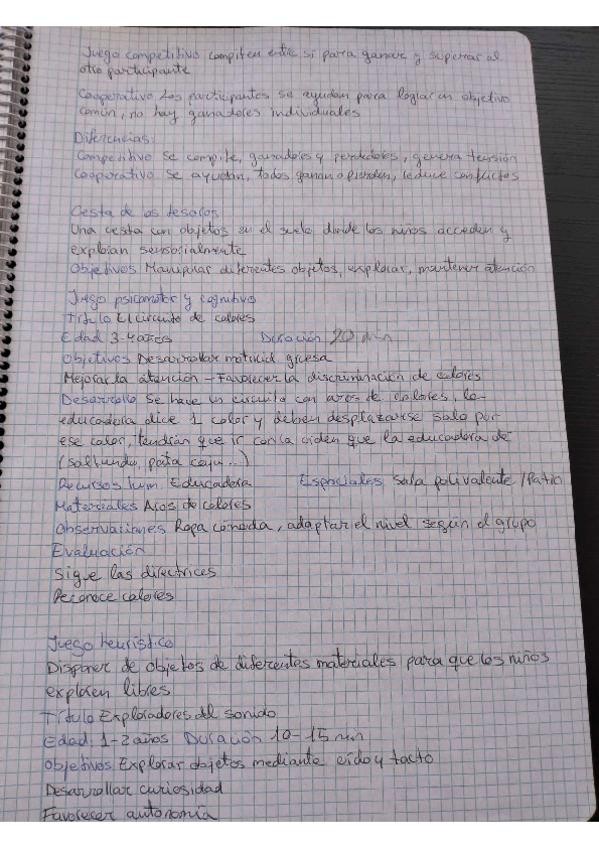 Juego competitivo compiten entre si para ganar y superar al
otro participante
Cooperativo Los participantes se ayudan para lograr un objetivo
común, no hay ganadores individuales
Diferencias:
Competitivo Se compite, ganadores y perdedores, genera tensión
Cooporativo Se ayudan, todos ganan o pierden, reduce conflictos
Cesta de los tesoros
Una cesta con objetos en el suelo donde los niños acceden y
exploran sensorialmente
Objetivos Manipular diferentes objetos, explorar, mantener atención
Juego psicomotor y cognitivo
Título El circuito de colores
Edad 3-4 años Duración 20 min
Objetivos Desarrollar motricid gruesa
Mejorar la atención - Favorecer la discriminación de colores
Desarrollo Se hace un circuito con aros de colores, la
educadora dice 1 color y deben desplazarse solo por
ese color, tendrán que ir con la orden que la educadora de
(saltando, pata coja...)
Recursos hum. Educadora Espaciales Sala polivalente / Patio
Materiales Aros de colores
Observaciones Ropa cómoda, adaptar el nivel según el grupo
Evaluación
Sigue las directrices
Reconoce colores
Juego heurístico
Disponer de objetos de diferentes materiales para que los niños
exploren libres
Título Exploradores del sonido
Edad: 1-2 años Duración 10-15 min
Objetivos Explorar objetos mediante oído y tacto
Desarrollar curiosidad
Favorecer autonomía